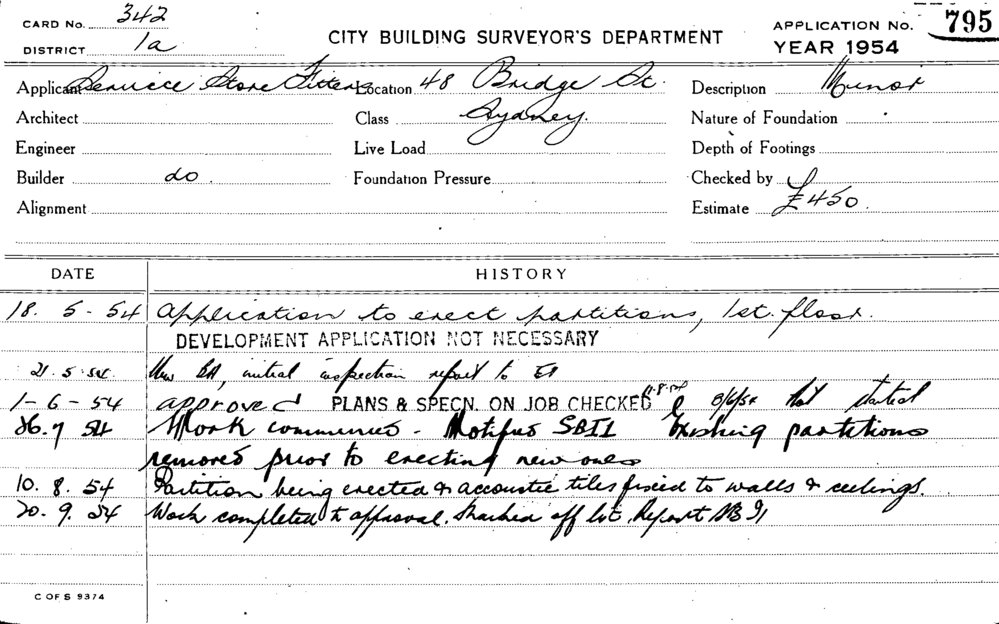 CARD No. 342
DISTRICT 1a
CITY BUILDING SURVEYOR'S DEPARTMENT
APPLICATION No. 795
YEAR 1954
Applicant Service Store Fitters Location 48 Bridge St. Description Minor
Architect Class Sydney. Nature of Foundation
Engineer Live Load Depth of Footings
Builder do Foundation Pressure Checked by
Alignment Estimate £450.
DATE HISTORY
18. 5 - 54 Application to erect partitions, 1st. floor.
DEVELOPMENT APPLICATION NOT NECESSARY
21.5.54. initial inspection report to
1-6-54 approved PLANS & SPECN. ON JOB CHECKED 8/6/54 Not started
26.7 54 Work commenced - Notified SBII Existing partitions
removed prior to erecting new ones
10. 8. 54 Partition being erected & accoustic tiles fixed to walls & ceilings.
20. 9. 54 Work completed to approval. Marked off list. Report
C OF S 9374